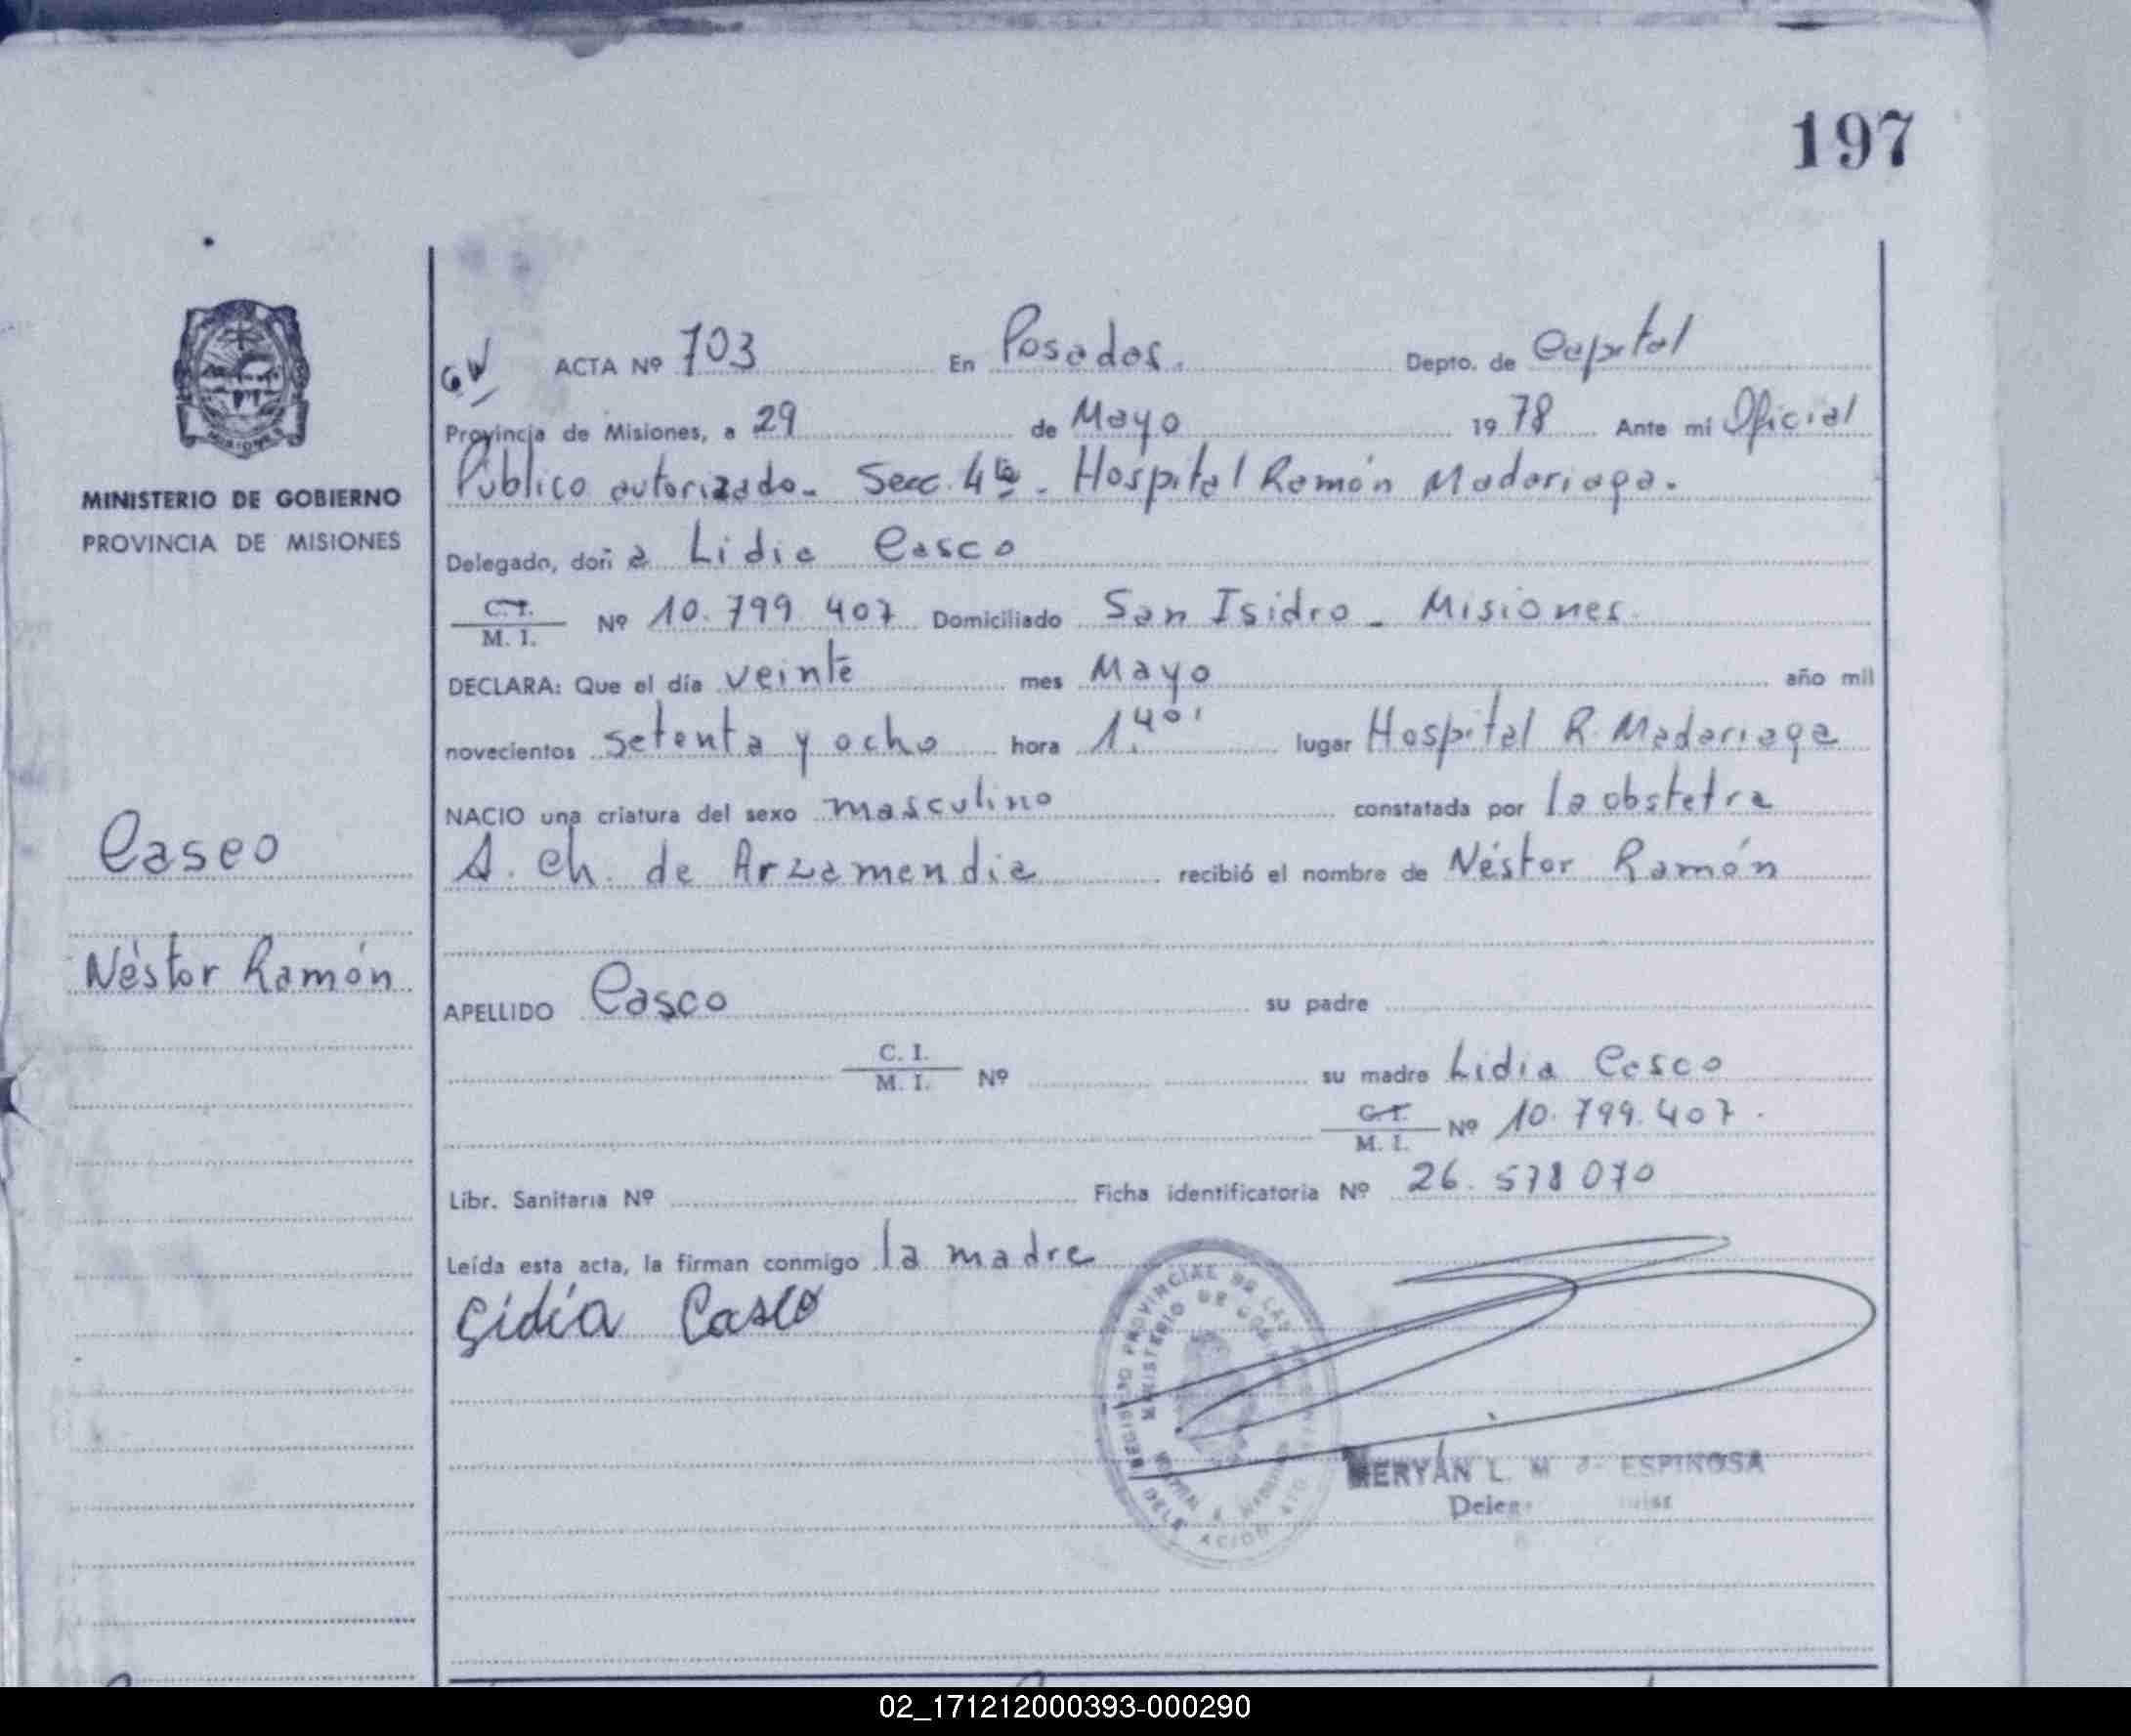 197
MINISTERIO DE GOBIERNO
PROVINCIA DE MISIONES
Casco
Néstor Ramón
ACTA Nº 703 En Posadas. Depto. de Capital
Provincia de Misiones, a 29 de Mayo 1978 Ante mi Oficial
Público autorizado. Secc. 4ta. Hospital Ramón Madariaga.
Delegado, doña Lidia Casco
C.I.
M. I. Nº 10.799.407 Domiciliado San Isidro - Misiones.
DECLARA: Que el día veinte mes Mayo año mil
novecientos setenta y ocho hora 1.40' lugar Hospital R. Madariaga
NACIO una criatura del sexo masculino constatada por la obstetra
A. Ch. de Arzamendia recibió el nombre de Néstor Ramón
APELLIDO Casco su padre
C. I.
M. I. Nº su madre Lidia Casco
C.I.
M. I. Nº 10.799.407.
Libr. Sanitaria Nº Ficha identificatoria Nº 26.578 070
Leída esta acta, la firman conmigo la madre
Lidia Casco
MERYÁN L. M ESPINOSA
02_171212000393-000290